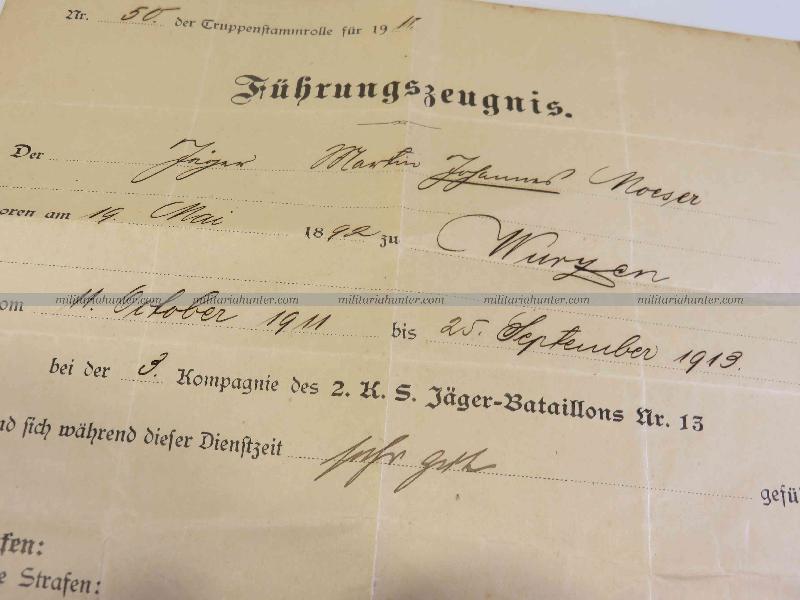 Nr. 50. der Truppenstammrolle für 1911.
Führungszeugnis.
Der Jäger Martin Johannes Moeser
oren am 19. Mai 1892 zu Wurzen
om 11. October 1911 bis 25. September 1913.
militariahunter.com militariahunter.com militariahunter.com militariahunter.com militariahunter.com
bei der 3. Kompagnie des 2. K. S. Jäger-Bataillons Nr. 13
nd sich während dieser Dienstzeit sehr gut gefü
fen:
e Strafen: